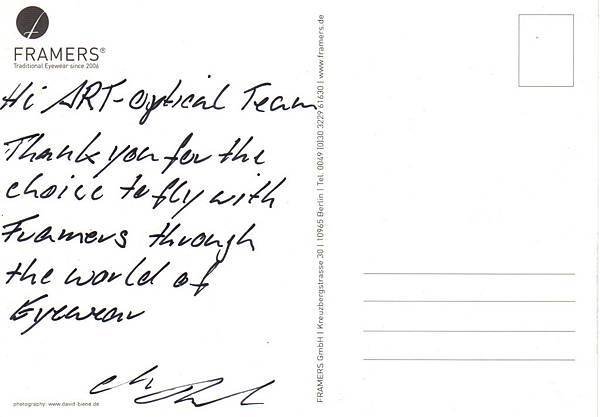 FRAMERS®
Traditional Eyewear since 2006
Hi ART-optical Team
Thank you for the
choice to fly with
Framers through
the world of
Eyewear
photography: www.david-biene.de
FRAMERS GmbH | Kreuzbergstrasse 30 | 10965 Berlin | Tel. 0049 (0)30 3229 61630 | www.framers.de